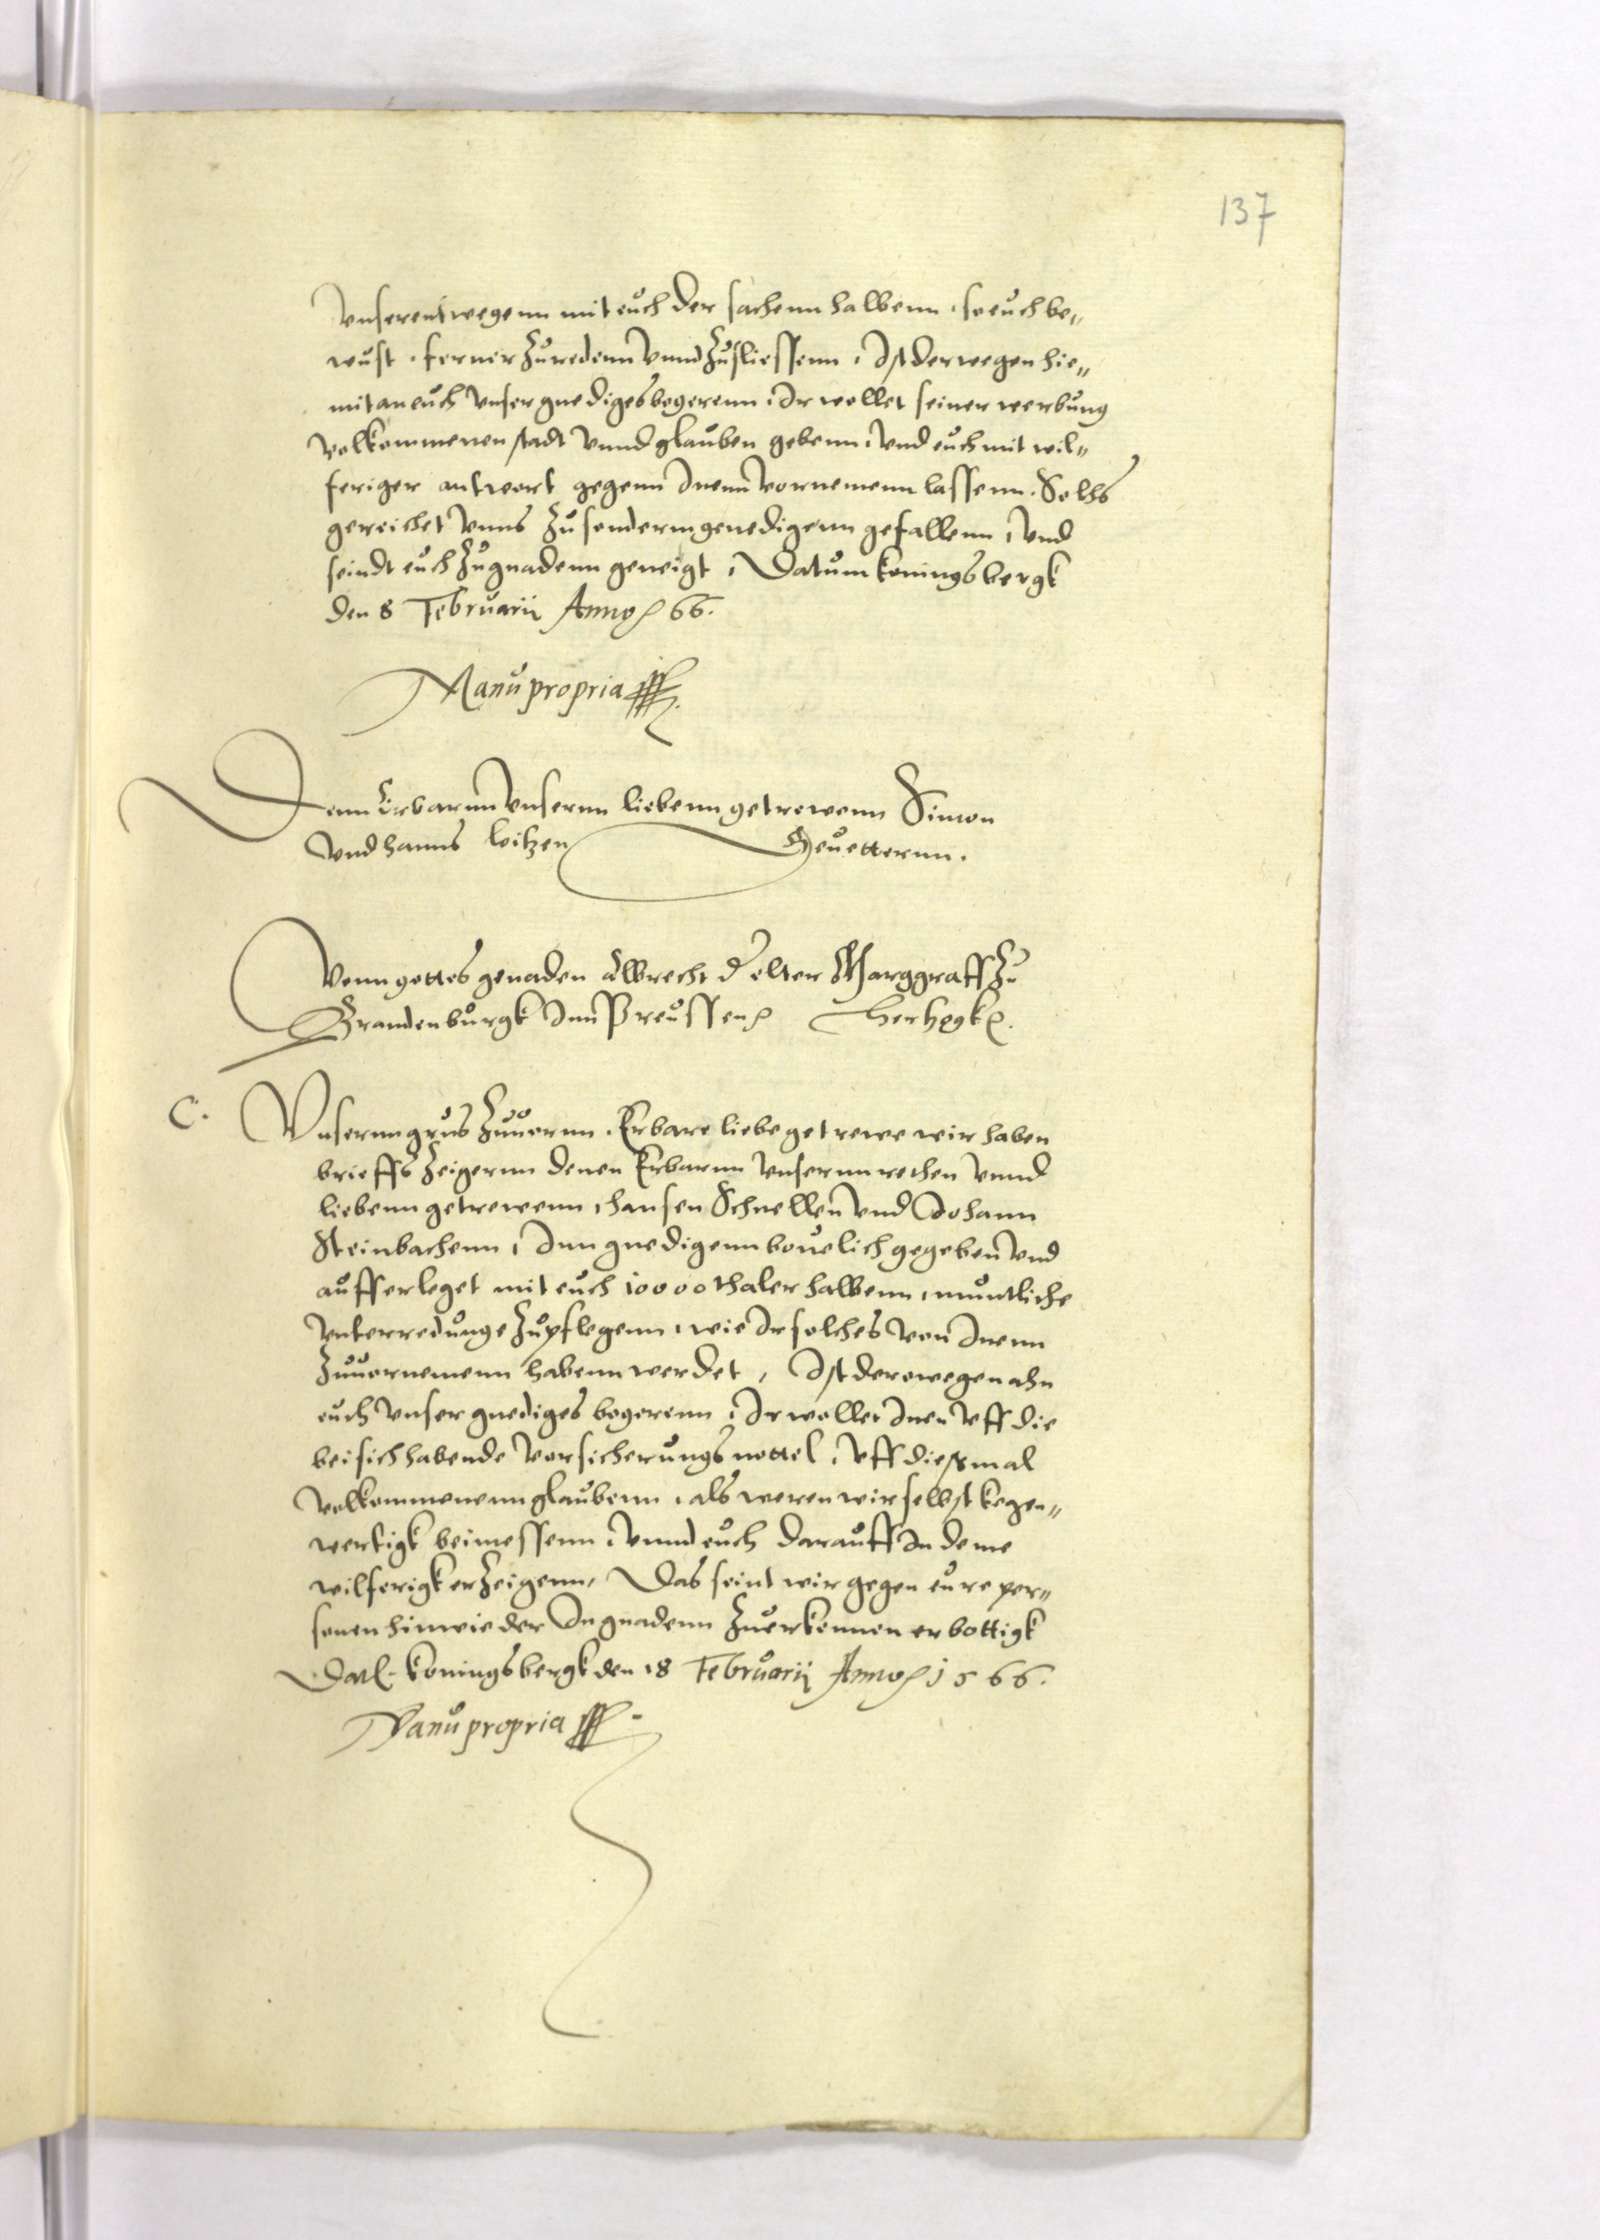 137
vnserentwegenn mit euch der sachenn halbenn, so euch be„
wust, ferner zuredenn vnnd zuschliessenn, Ist derwegen hie„
mit an euch vnser gnediges begerenn, Ir wollet seiner werbung
volkommenen stadt vnnd glauben gebenn, vnd euch mit wil„
feriger antwort gegenn Inenn vornemenn lassenn. Solchs
gereichet vnns zu sonderm genedigenn gefallenn, vnd
seindt euch zu gnadenn geneigt, Datum koningsbergk
den 8 Februarij Anno 66.
Manu propria
Denn Erbarnn vnsernn liebenn getrewenn Simon
vnd hanns loitzen Geuetternn.
Vonn gottes genaden Albrecht d elter Marggraff zu
Brandenburgk Inn Preussen Hertzogk
C. Vnsernn grus zuuornn. Erbare liebe getrewe wir haben
brieffs zeigernn denen Erbarnn vnsernn rethen vnnd
liebenn getrewenn, hansen Schnellen vnd Johann
Steinbachenn, Inn gnedigenn beuelich gegeben vnd
aufferleget mit euch 10000 thaler halbenn, muntliche
vnterredunge zu pflegenn, wie Ir solches von Inenn
zuuornemenn habenn werdet, Ist derowegen ahn
euch vnser gnediges begerenn, Ir wollet Inen vff die
bei sich habende vorsicherungs nottel, vff diesmal
volkommenenn glaubenn, als weren wir selbst kegen„
wertigk beimessenn, vnnd euch darauff In deme
wilferigk erzeigenn, Das seint wir gegen eure per„
sonen hinwieder In gnadenn zuerkennen erbottigk
Dat. Koningsbergk den 18 Februarij Anno 1566.
Manu propria